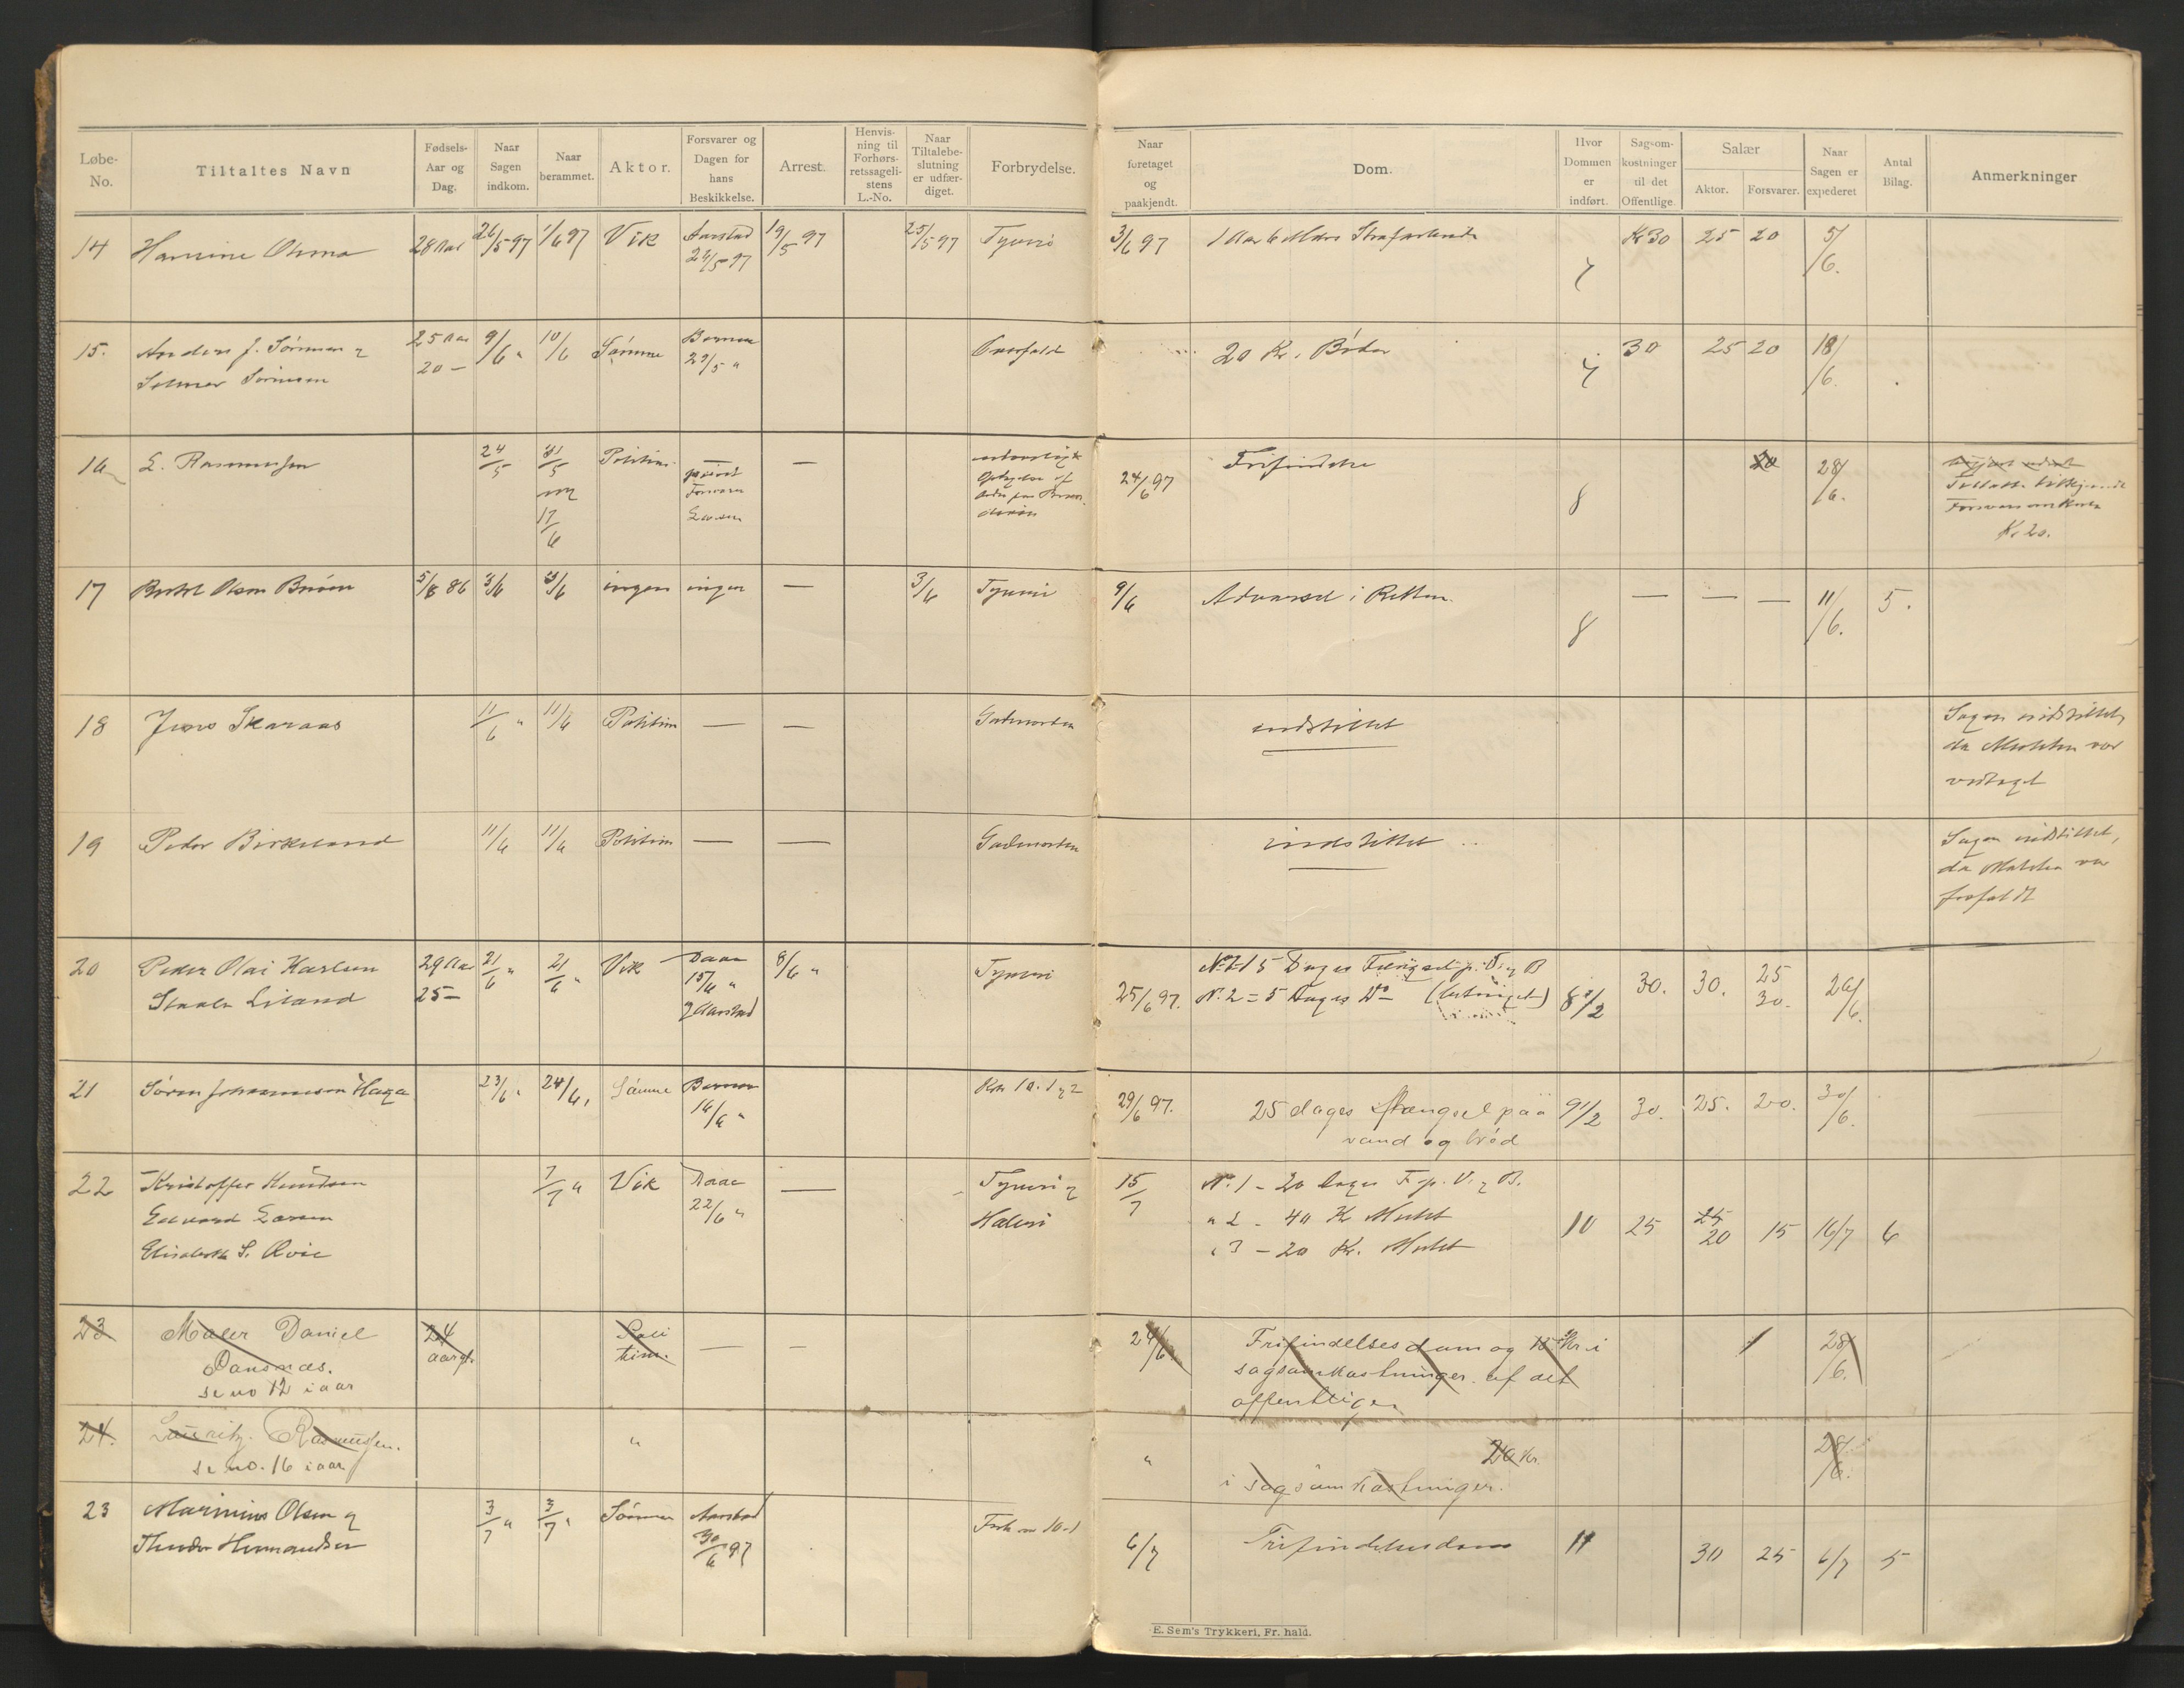 Løbe-No.
Tiltaltes Navn
Fødsels-Aar og Dag.
Naar Sagen indkom.
Naar berammet.
Aktor.
Forsvarer og Dagen for hans Beskikkelse.
Arrest.
Henvis-ning til Forhørs-retssageli-stens L.-No.
Naar Tiltalebe-slutning er udfær-diget.
Forbrydelse.
Naar foretaget og paakjendt.
Dom.
Hvor Dommen er indført.
Sagsom-kostninger til det Offentlige.
Salær
Aktor.
Forsvarer.
Naar Sagen er expederet
Antal Bilag.
Anmerkninger
14 28 Aar 26/5 97 1/6 97 Vik Aarstad 19/5 97 25/5 97 Tyveri 3/6 97 1 Aar 6 Mdrs Strafarbeide 7 Kr 30 25 20 5/6.
24/5 97
15. Anders J. Sørensen og 25 Aar 9/6 " 10/6 Sømme Overfald 20 Kr. Bøder 7 30 25 20 18/6.
20 –
16 L. Rasmussen 24/5 31/5 Politim. — 24/6 97 Frifindelse 8 20 28/6.
og privat
17/6 Forsvarer
Kr. 20.
17 5/8 86 3/6 3/6 ingen ingen — 3/6 Tyveri 9/6 Advarsel i Retten. 8 — — — 11/6. 5.
18 Jens Skaraas 11/6 " 11/6 Politim — — Gadeuorden indstillet Sagen indstillet,
da Mulkten var
vedtaget
19 Peder Birkeland 11/6 11/6 Politim — — Gadeuorden indstillet Sagen indstillet,
da Mulkten var
frafaldt
20 Peder Olai Karlsen 29 Aar 21/6 " 21/6 " Vik Daae 8/6 " Tyveri 25/6 97. No. 1 15 Dages Fængsel p. V. og B 8 1/2 30. 30. 25 26/6.
25 – 15/6 " No. 2 = 5 Dages Do – (betinget) 30.
og Aarstad
21 Søren Johannessen Haga 23/6 " 24/6, Sømme 16/6 " Kap 10. 1 og 2 29/6 97. 25 dages fængsel paa 9 1/2 30. 25. 20. 30/6.
vand og brød
22 Kristoffer Knudsen 7/7 " Vik Daae — Tyveri og 15/7 No. 1 – 20 Dages F. p. V. og B.
Edvard Larsen 22/6 " Hæleri " 2 – 40 Kr Mulkt 10 25 25 20 15 16/7 6
Elisabeth S. " 3 – 20 Kr. Mulkt
23 Maler Daniel 24 Poli — — 24/6 Frifindelsesdom og 15 Kr. i 28/6.
aar gl. tim. sagsomkostninger af det
se no 12 i aar offentlige.
24. Lauritz Rasmussen. " " 20 Kr. 28/6.
se no. 16 i aar i sagsomkostninger.
23 Marinius Olsen og 3/7 " 3/7 " Sømme Aarstad 6/7 Frifindelsesdom 11 30 25 6/7 5
30/6 97
E. Sem's Trykkeri, Fr. hald.